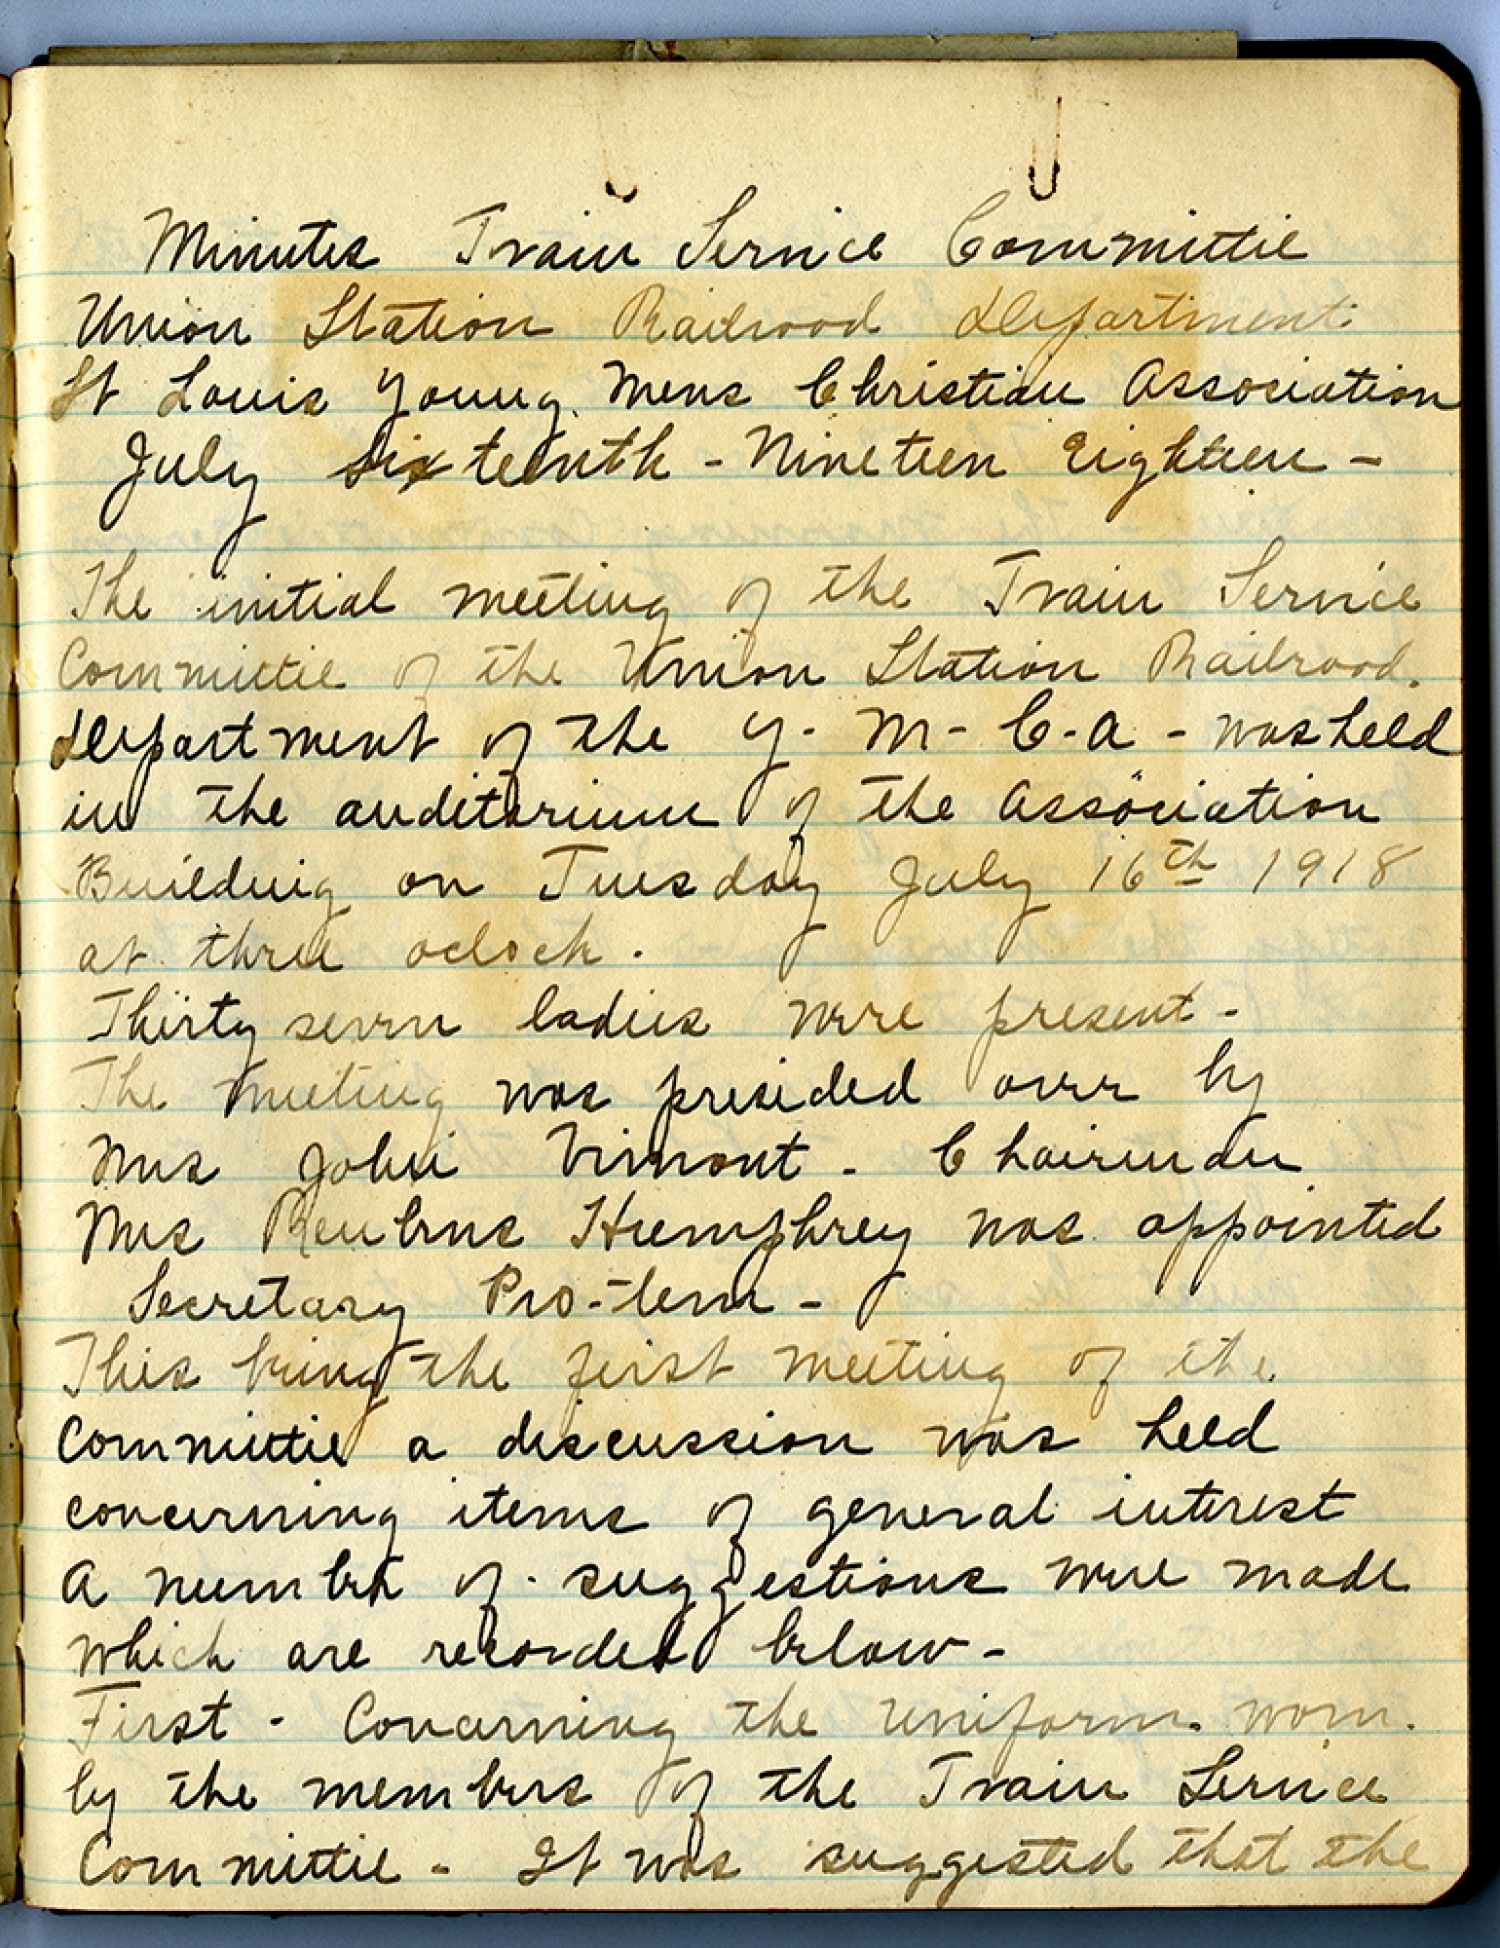 Minutes Train Service Committee
Union Station Railroad department
St Louis Young Mens Christian Association
July sixteenth - Nineteen Eighteen -
The initial meeting of the Train Service
Committee of the Union Station Railroad.
department of the Y. M- C. A - was held
in the auditorium of the Association
Building on Tuesday July 16th 1918
at three oclock.
Thirty seven ladies were present -
The meeting was presided over by
Mrs John Vimont - Chairman
Mrs Reubens Humphrey was appointed
Secretary Pro-tem -
This being the first meeting of the
Committee a discussion was held
concerning items of general interest
A number of suggestions were made
which are recorded below -
First - Concerning the uniform. worn.
by the members of the Train Service
Committee - It was suggested that the